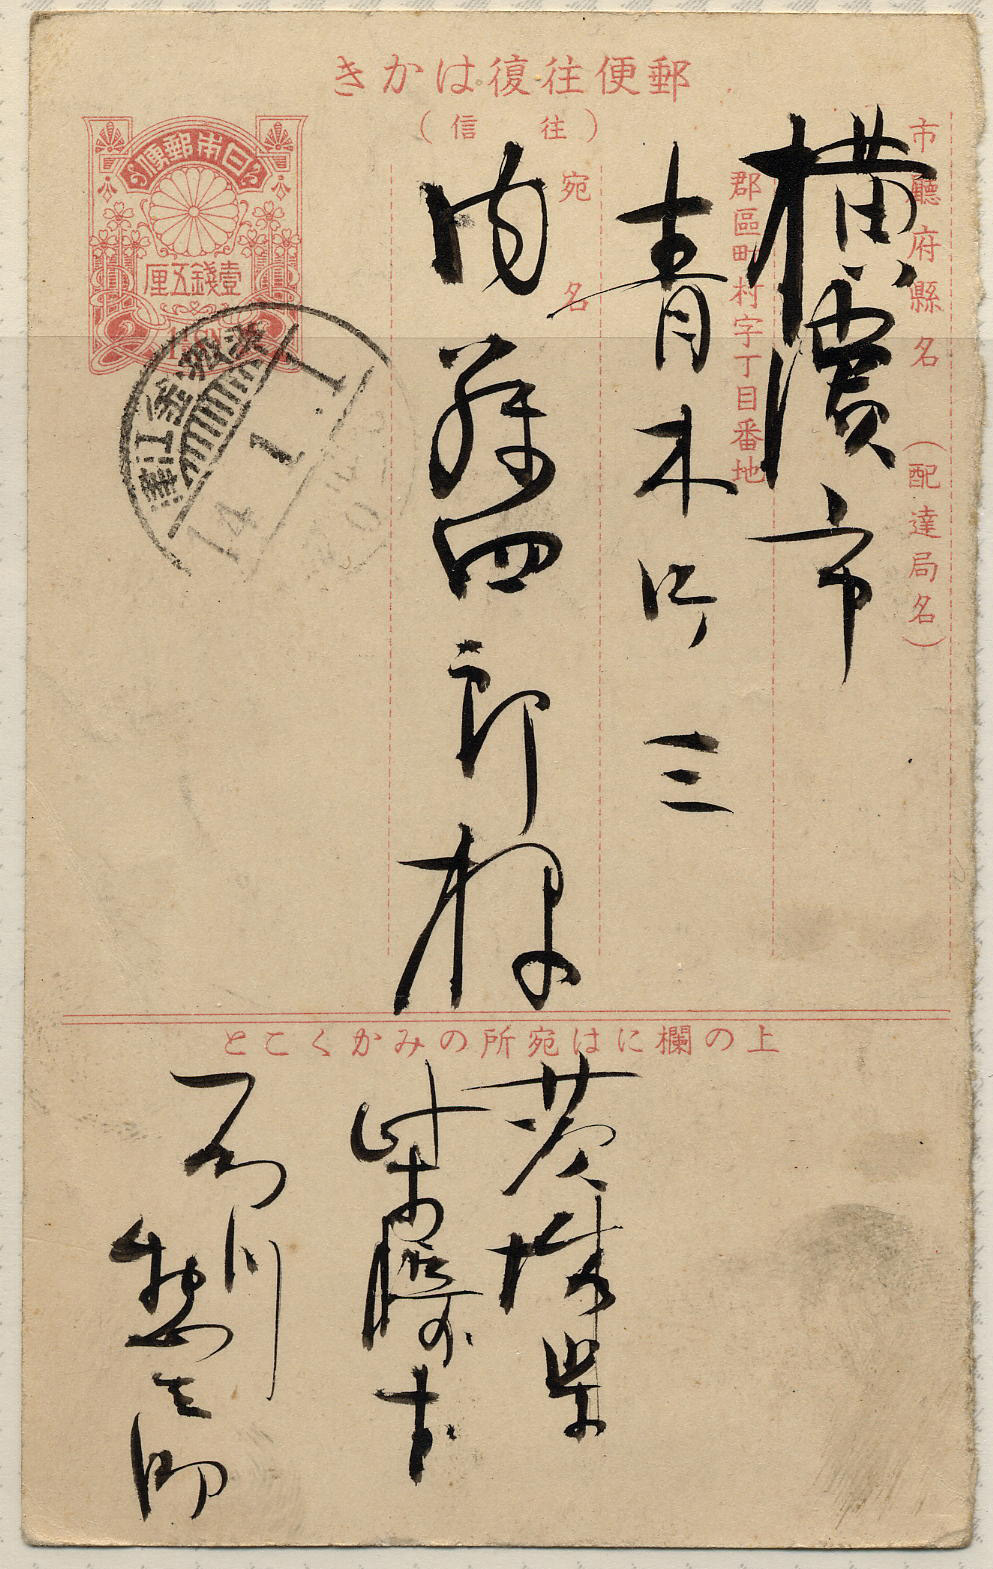 郵便往復はかき
(往信)
市廳府縣名(配達局名)
横濱市
郡區町村字丁目番地
青木町三
宛名
内藤四郎様
日本郵便
壹錢五厘
1½ Sn
江
14
1.1
上の欄には宛所のみかくこと
茨城
柴崎村
石川惣之助